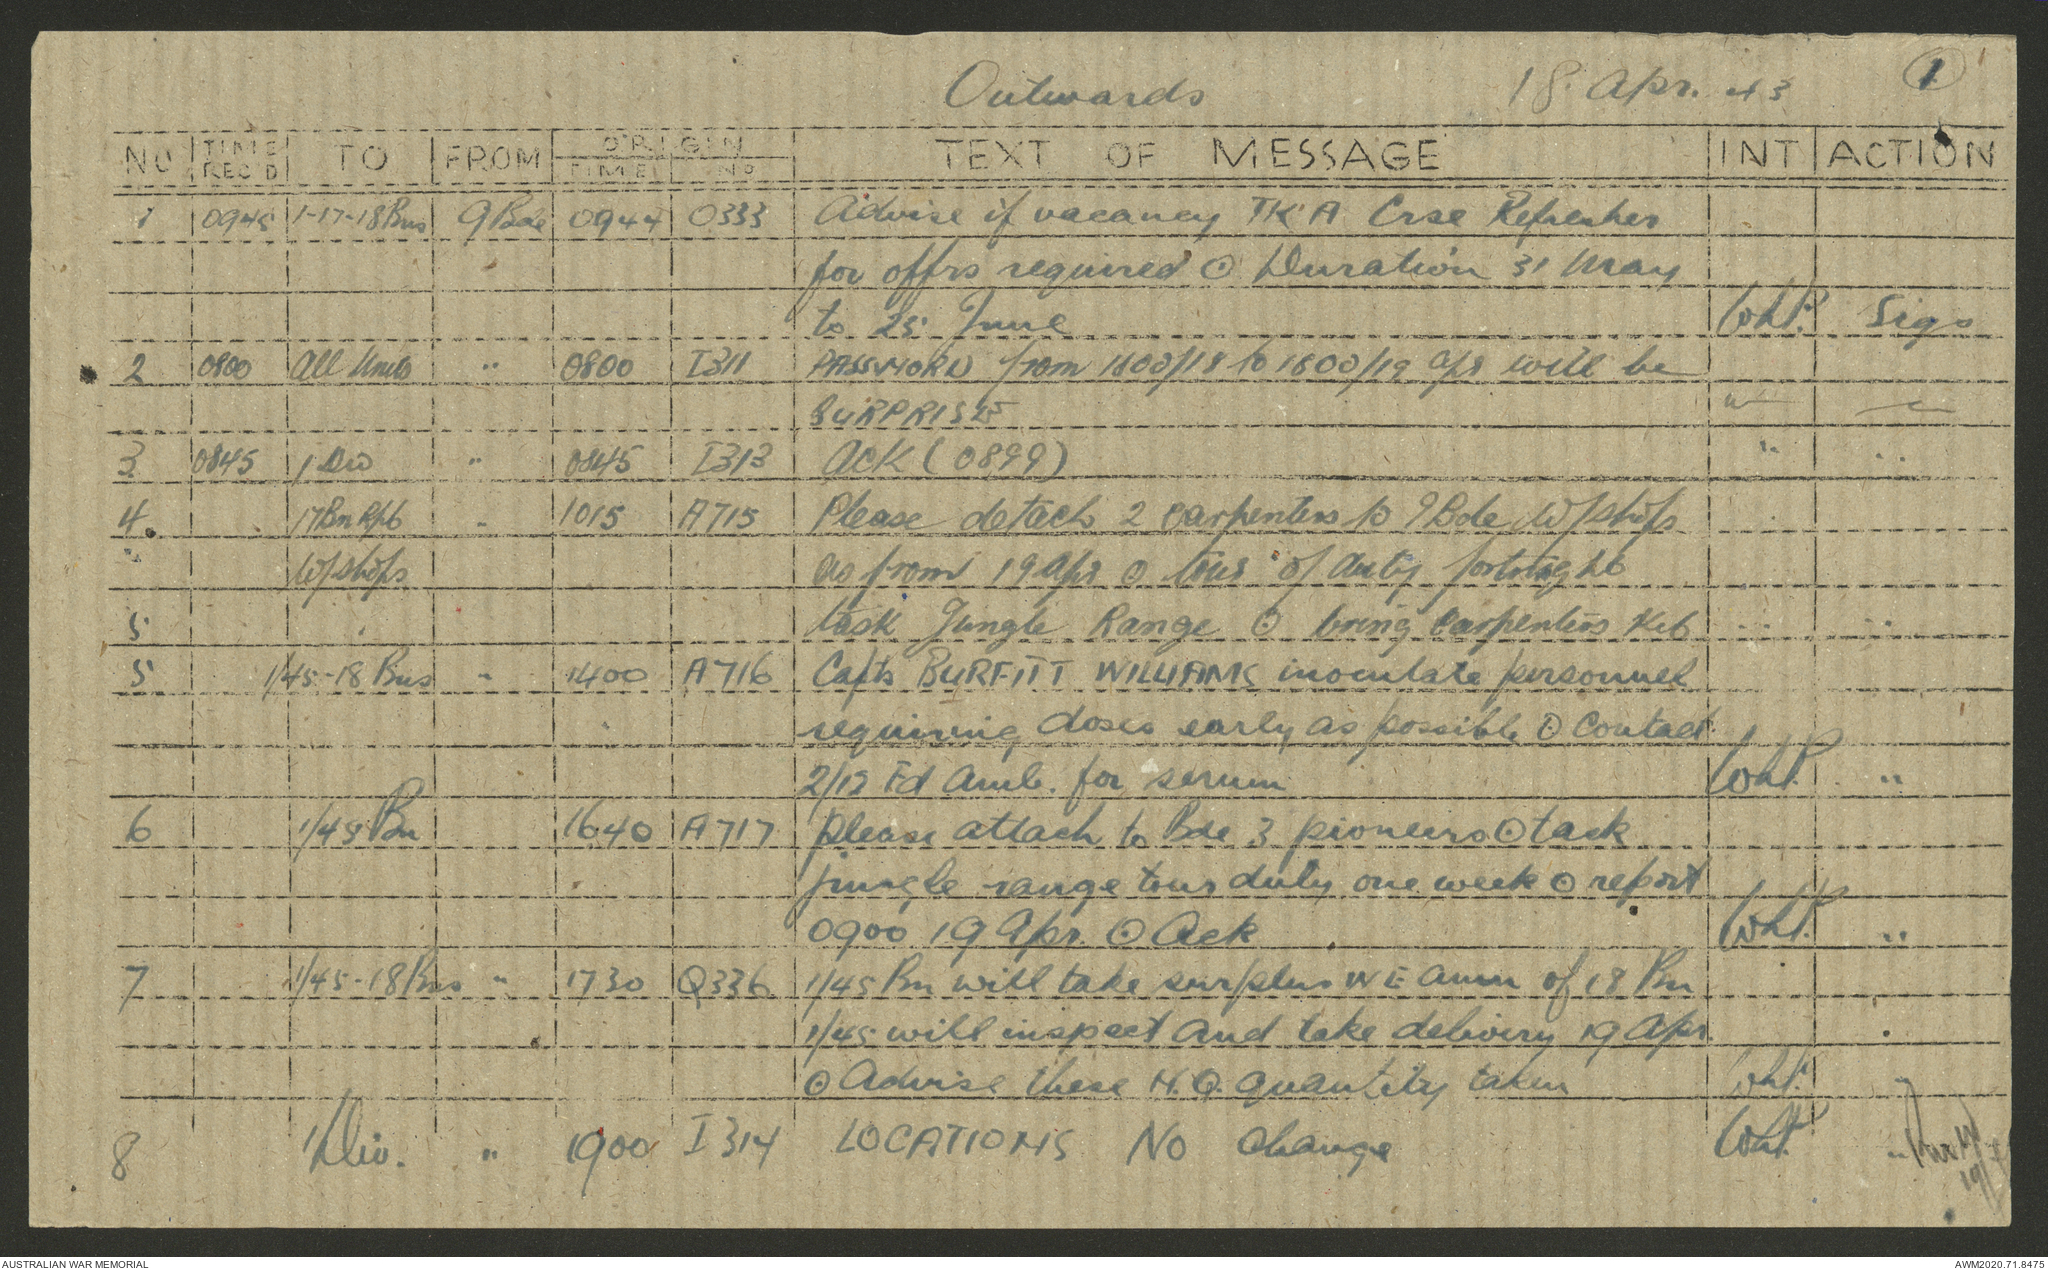 Outwards 18. Apr. 43 1
NO TIME REC'D TO FROM ORIGIN TIME NO TEXT OF MESSAGE INT ACTION
1 0945 1-17-18 Bns 9 Bde 0944 O333 Advise if vacancy Crse Refresher
for offrs required ⊙ Duration 31 May
to 25 June WhP. Sigs
2 0800 All Units " 0800 I311 PASSWORD from 1800/18 to 1800/19 apr will be
SURPRISE " "
3 0845 1 Div " 0845 I313 ACK (0899) " "
4. 17 Bn Rft " 1015 A715 Please detach 2 carpenters to 9 Bde W/shops
" W/shops as from 19 Apr ⊙ tour of duty fortnight
5 task Jungle Range ⊙ bring carpenters kit " "
5 1/45-18 Bns " 1400 A716 Capts BURFITT WILLIAMS inoculate personnel
requiring doses early as possible ⊙ Contact
2/12 Fd Amb. for serum WhP. "
6 1/45 Bn 1640 A717 please attach to Bde 3 pioneers ⊙ task
jungle range tour duty one week ⊙ report
0900 19 Apr. ⊙ Ack WhP. "
7 1/45-18 Bns " 1730 Q336 1/45 Bn will take surplus WE amn of 18 Bn
1/45 will inspect and take delivery 19 Apr.
⊙ Advise these H.Q. quantity taken WhP. "
8 1 Div. " 1900 I314 LOCATIONS NO change WhP. "
19/4
AUSTRALIAN WAR MEMORIAL AWM2020.71.8475